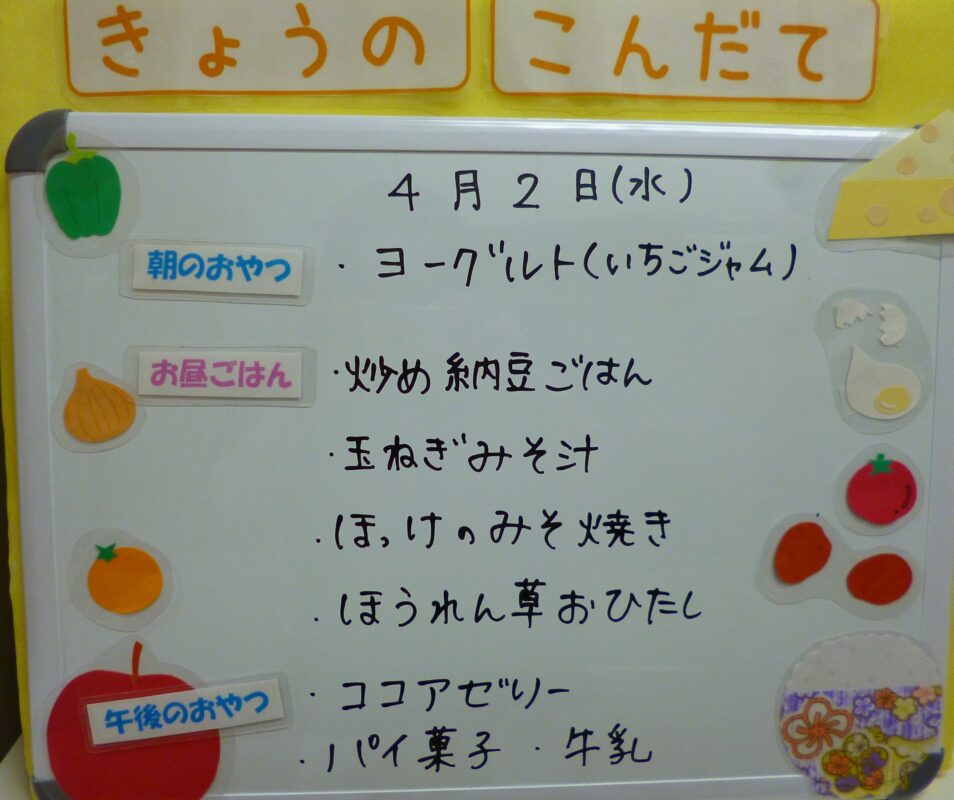 きょうの こんだて
4月2日(水)
朝のおやつ ・ヨーグルト(いちごジャム)
お昼ごはん ・炒め納豆ごはん
・玉ねぎみそ汁
・ほっけのみそ焼き
・ほうれん草おひたし
午後のおやつ ・ココアゼリー
・パイ菓子 ・牛乳